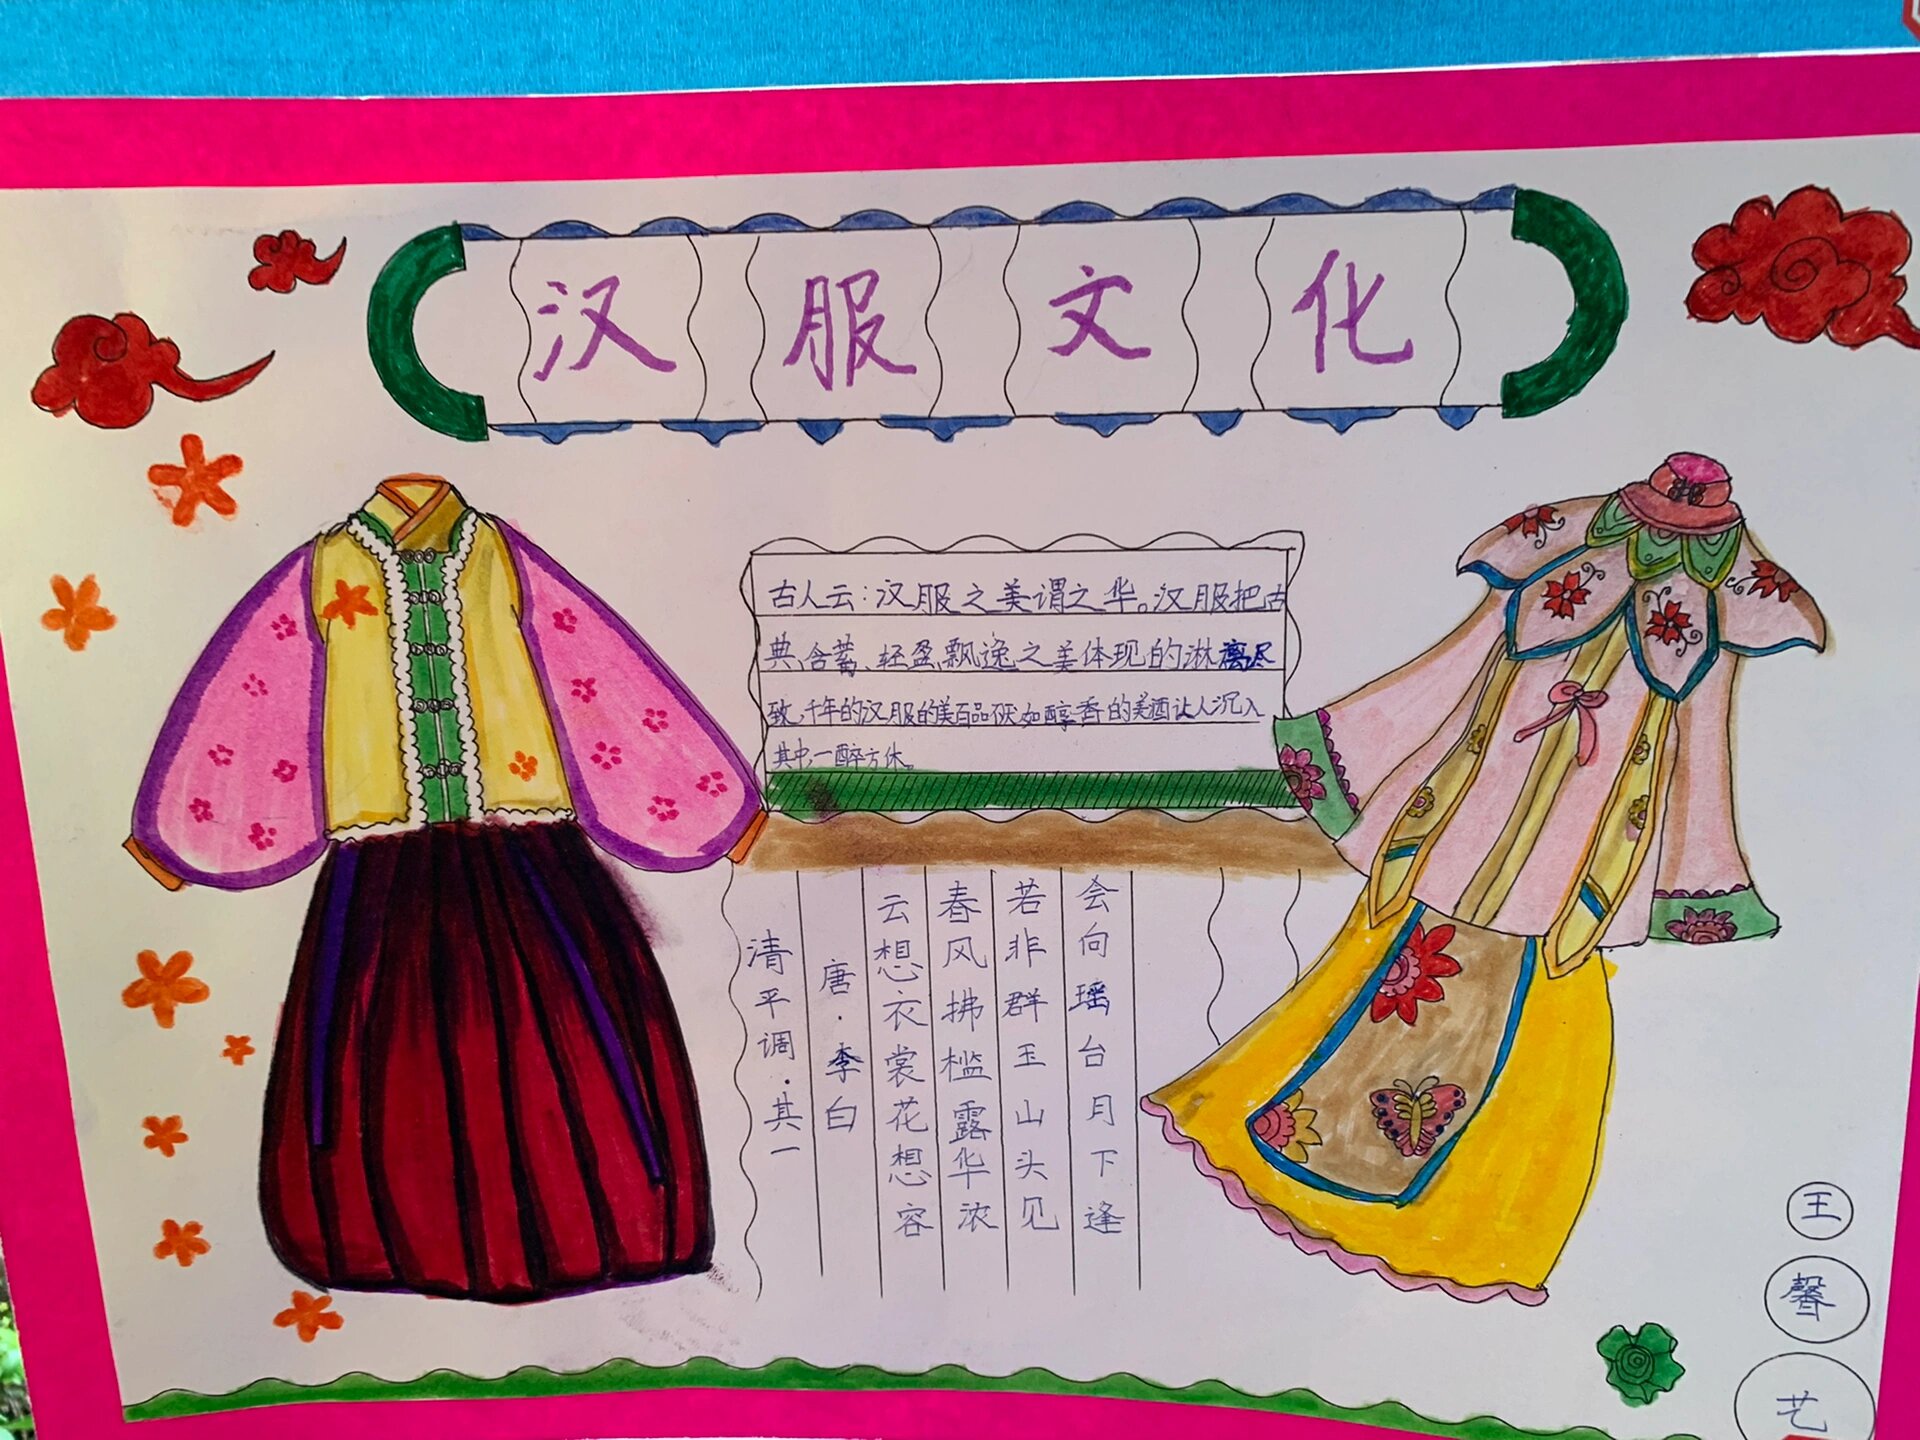 汉服文化
古人云：汉服之美谓之华。汉服把古
典、含蓄、轻盈、飘逸之美体现的淋漓尽
致,千年的汉服的美百品不厌,如醇香的美酒让人沉入
其中,一醉方休。
清平调·其一
唐·李白
云想衣裳花想容
春风拂槛露华浓
若非群玉山头见
会向瑶台月下逢
王
馨
艺